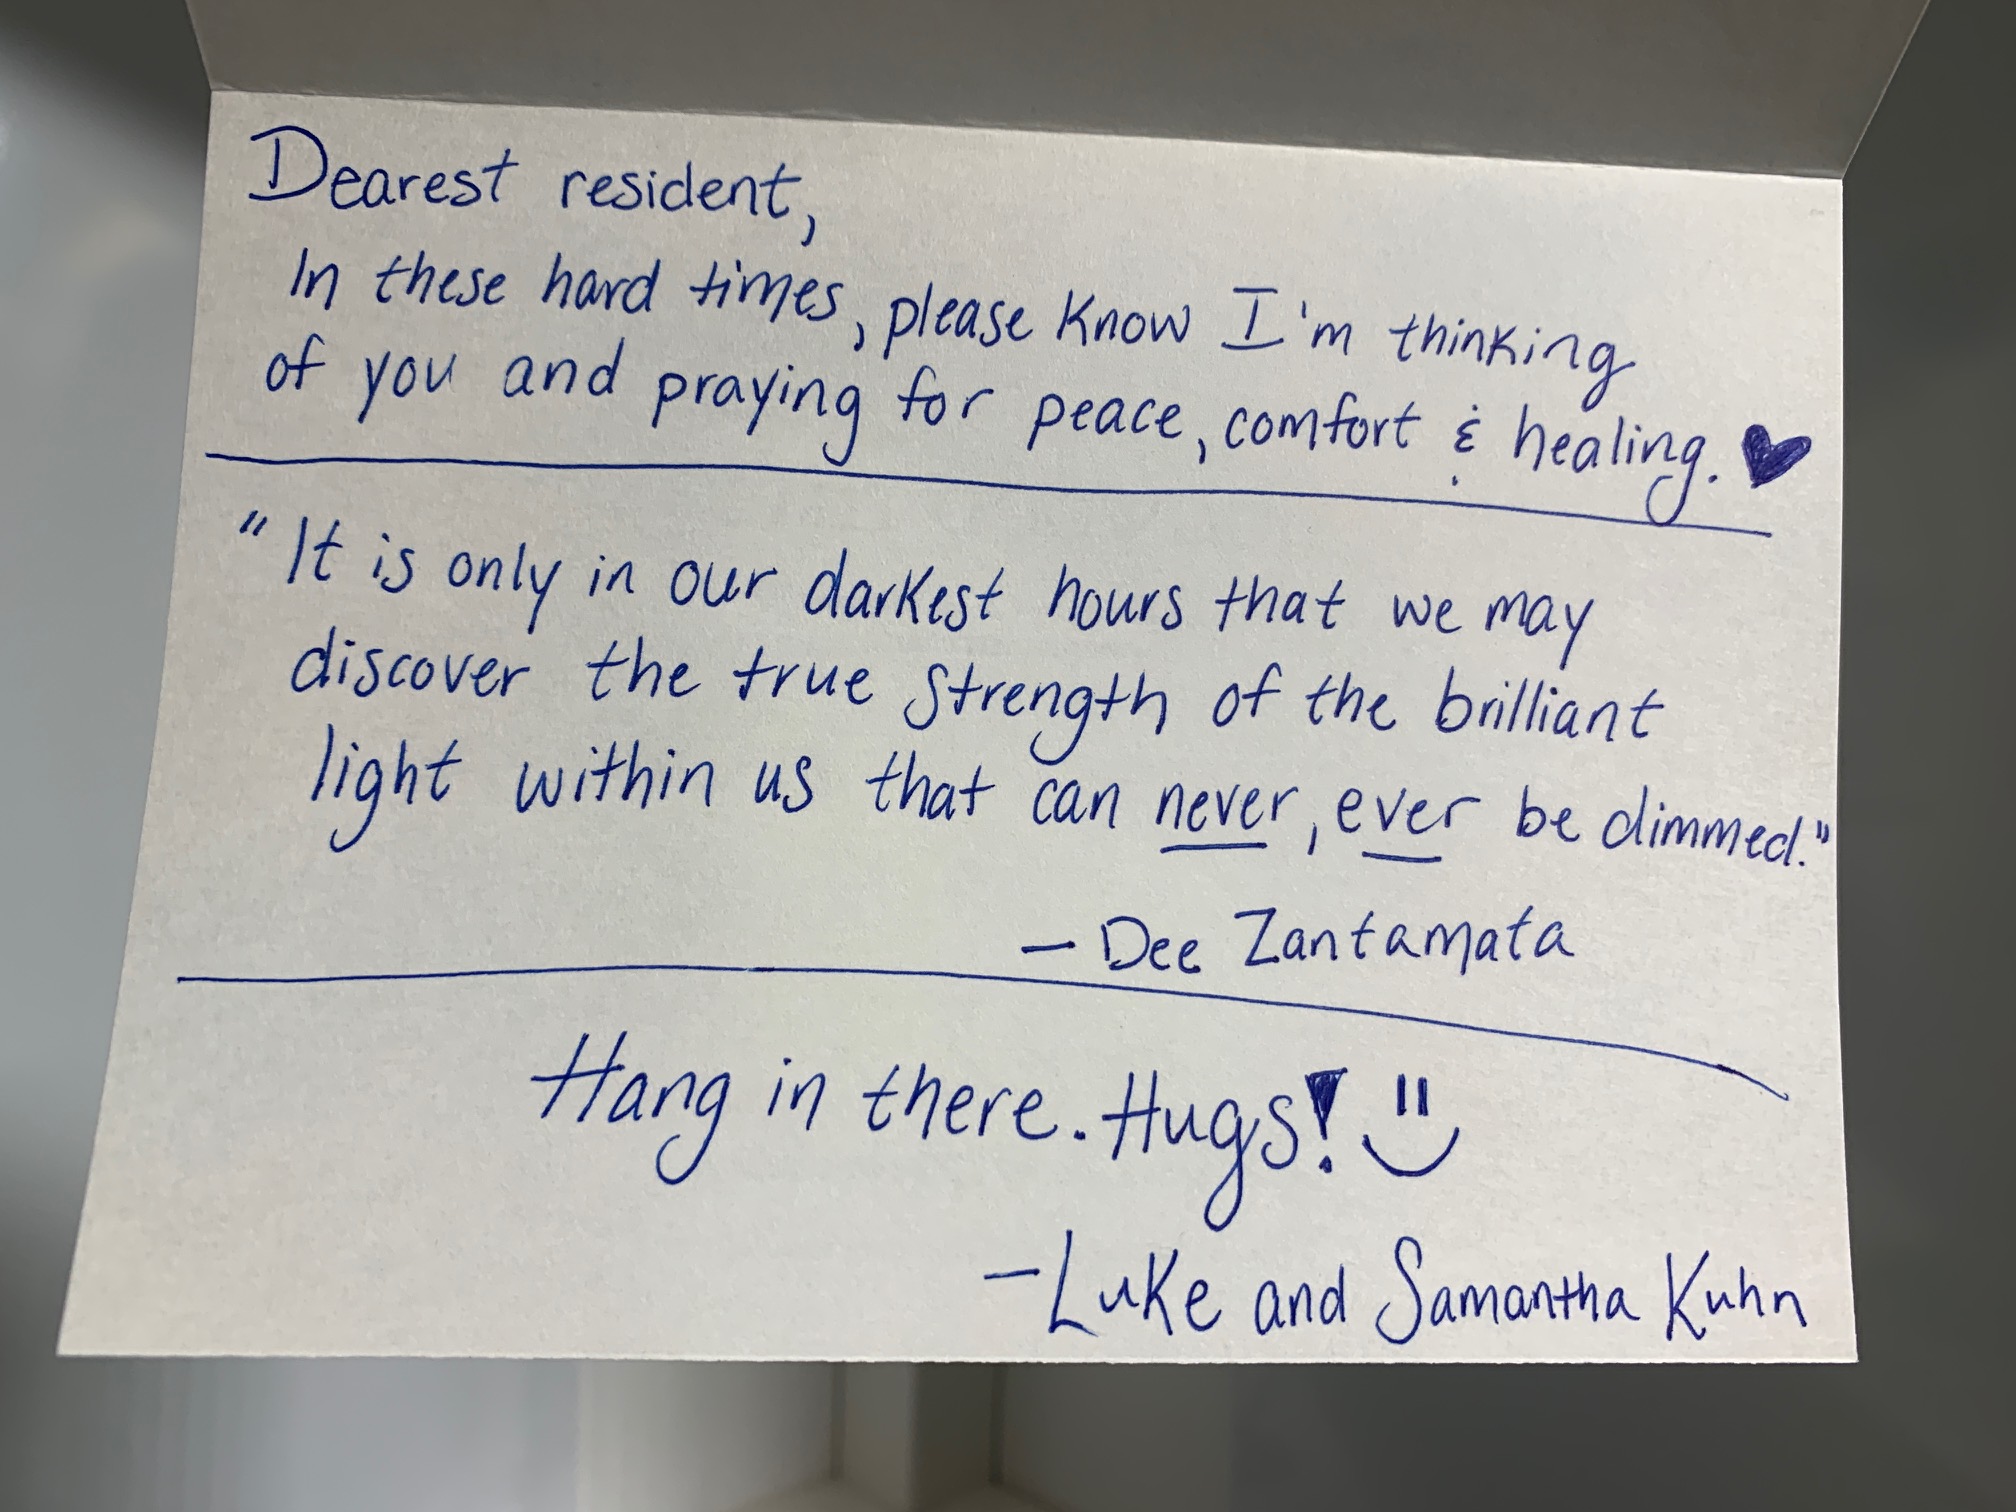 Dearest resident,
In these hard times, please know I'm thinking
of you and praying for peace, comfort & healing. ♥
"It is only in our darkest hours that we may
discover the true strength of the brilliant
light within us that can never, ever be dimmed."
- Dee Zantamata
Hang in there. Hugs! =)
- Luke and Samantha Kuhn